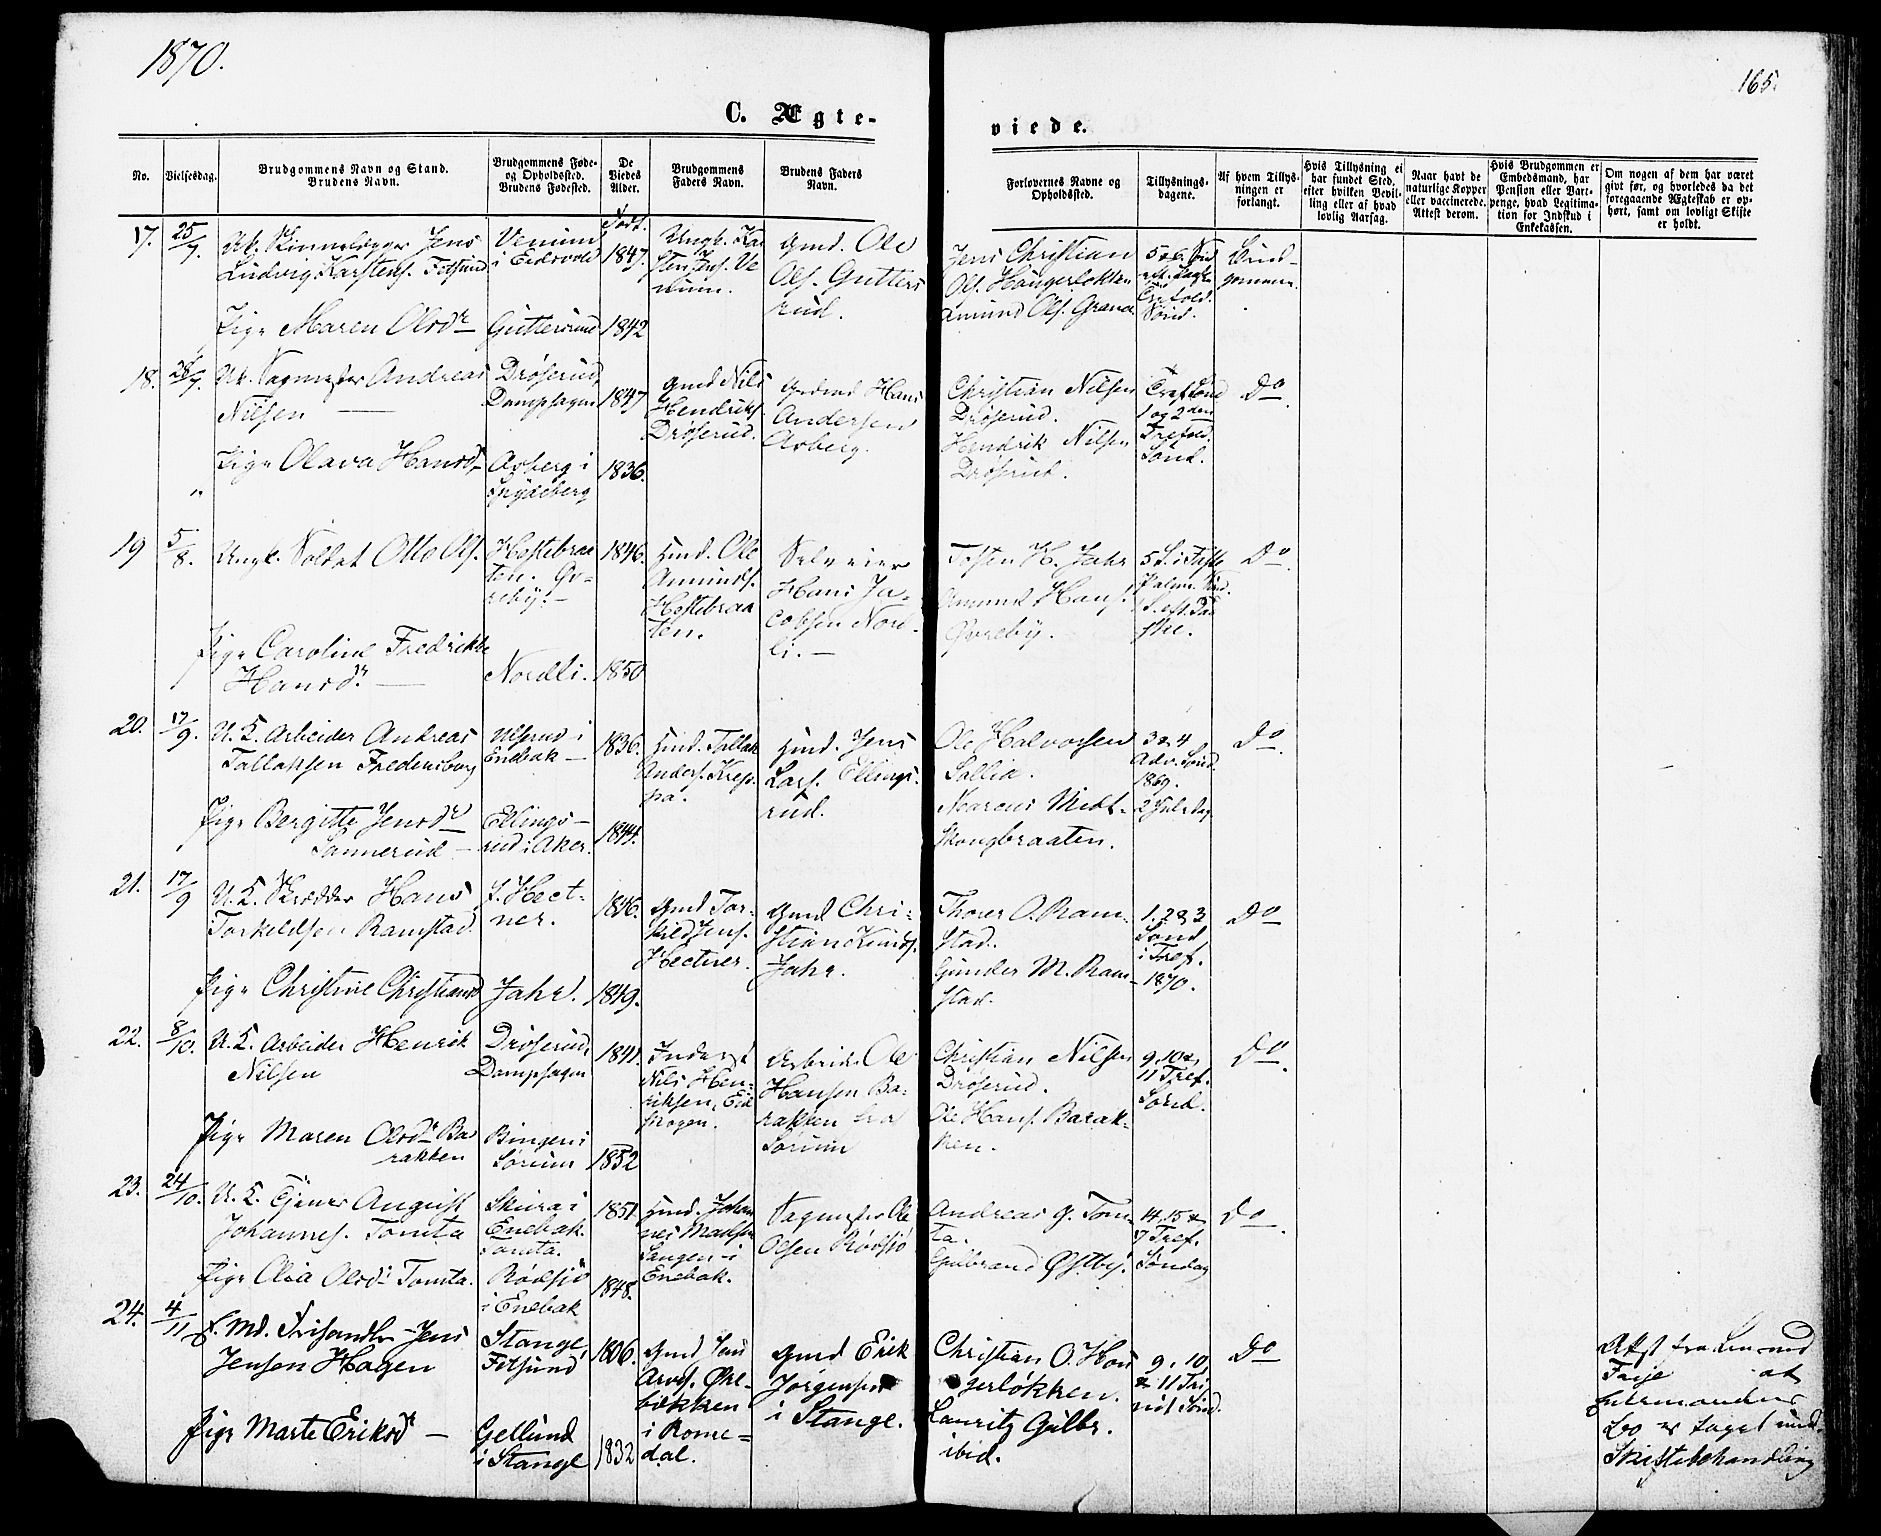 1870.
165.
C. Ægte-
viede.
No.
Vielsesdag.
Brudgommens Navn og Stand.
Brudens Navn.
Brudgommens Føde-
og Opholdssted.
Brudens Fødested.
De
Viedes
Alder.
Brudgommens
Faders Navn.
Brudens Faders
Navn.
Forlovernes Navne og
Opholdssted.
Tillysnings-
dagene.
Af hvem Tillys-
ningen er
forlangt.
Hvis Tillysning ei
har fundet Sted,
efter hvilken Bevil-
ling eller af hvad
lovlig Aarsag.
Naar havt de
naturlige Kopper
eller vaccinerede.
Attest derom.
Hvis Brudgommen er
Embedsmand, har
Pension eller Vart-
penge, hvad Legitima-
tion for Indskud i
Enkekassen.
Om nogen af dem har været
givt før, og hvorledes da det
foregaaende Ægteskab er op-
hørt, samt om lovligt Skifte
er holdt.
Født.
17.
25/7.
Jens
Ludvig Karstens. Fetsund
Venum
i Eidsvold
1847.
Ungk. Kar
sten Jens. Ve
num.
Gmd. Ole
Ols. Gutters
rud.
Jens Christian
Ols. Haugerløkken
Amund Ols. Grana
5 & 6. Sønd
Brud-
gommen.
Pige Maren Olsdr
Guttersrud
1842
18.
28/7.
Uk. Sagmester Andreas
Nilsen —
Drøserud,
Dampsagen
1847
Gmd Nils
Hendriks.
Drøserud.
Hans
Andersen
Aaberg.
Christian Nilsen
Drøserud.
Hendrik Nilsen
Drøserud.
1 og 2den
Trefol.
Sønd.
Do.
Pige Olava Hansd.
Aaberg i
1836.
19
5/8.
Ungk. Soldat Otto Ols.
Hestebraa
ten.
1846.
Hmd. Ole
Amunds.
Hestebraa
ten.
Selveier
Hans Ja-
cobsen Nord-
li. —
Tosten H. Jahr
Amund Hans.
Øvreby.
5 S. i Faste
Palme Sønd.
1 S. eft. Paa
ske.
Do.
Pige Caroline Fredrikke
Hansdr. —
Nordli.
1850
20.
17/9.
U. K. Arbeider Andreas
Tollaksen Fredensborg
Ulsrud i
Enebak —
1836.
Hmd. Tollak
Anders.
Hmd. Jens
Lars. Ellings-
rud.
Ole Halvorsen
Sollia.
Marcus Midt-
skougbraaten.
3 & 4
Adv. Sønd.
1869.
2 Juledag
Do.
Pige Bergitte Jensdr
Sannerud —
Ellings-
rud i Aker.
1844.
21.
17/9
U. K. Skrædder Hans
Torkeldsen Ramstad.
Hect-
ner.
1846.
Gmd Tor-
kild Jens.
Hectner.
Gmd Chri-
stian Knuds.
Jahr.
Thorer O. Ram-
stad.
Gunder M. Ram-
stad.
1. 2 & 3
Sønd
i Tref.
1870.
Do
Pige Christine Christiansd.
Jahr.
1849.
22.
8/10.
U. K. Arbeider Henrik
Nilsen
Drøserud,
Dampsagen
1841.
Inderst
Nils Hen-
riksen,
Arbeider Ole
Hansen Ba-
rakken fra
Sørum
Christian Nilsen
Drøserud.
Ole Hans. Barak-
ken.
9, 10 &
11 Tref.
Sønd.
Do.
Pige Maren Olsdr Ba
rakken
Bingen i
Sørum
1852
23.
24/10.
U. K. Tjener August
Johannes. Tomta
Skura i
Enebak.
Tomta.
1851
Hmd. Johan
nes Madsen
Tangen i
Enebak.
Sagmester Ole
Olsen Rødsjø
Andreas G. Tom-
ta.
Gulbrand Østby.
14, 15 &
17 Tref.
Søndag
Do.
Pige Olia Olsdr Tomta.
Rødsjø
i Enebak
1848.
24.
4/11
Jens
Jensen Hagen
Stange,
Fetsund
1806.
Gmd Jens
Arves. Øre-
bækken
i Rome-
dal.
Gmd Erik
Jørgensen
i Stange.
Christian O. Hau
gerløkken.
Lauritz Gulbr.
ibid.
9, 10
& 11 Tri
nit. Sønd.
Do
Attest fra Lensmd
Faye at
Enkemandens
Bo er taget und.
Skiftebehandling
Pige Marte Eriksdr —
Gellund
i Stange
1832